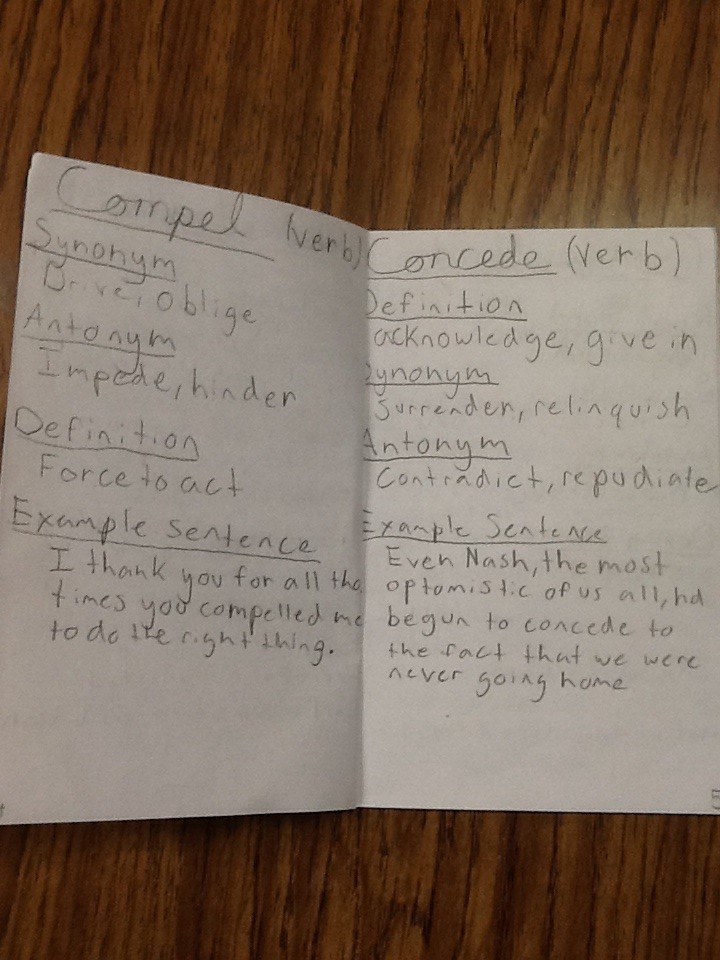 Compel (verb)
Synonym
Drive, oblige
Antonym
Impede, hinder
Definition
Force to act
Example sentence
I thank you for all the
times you compelled me
to do the right thing.
Concede (verb)
Definition
acknowledge, give in
Synonym
Surrender, relinquish
Antonym
Contradict, repudiate
Example Sentence
Even Nash, the most
optomistic of us all, hd
begun to concede to
the fact that we were
never going home
5